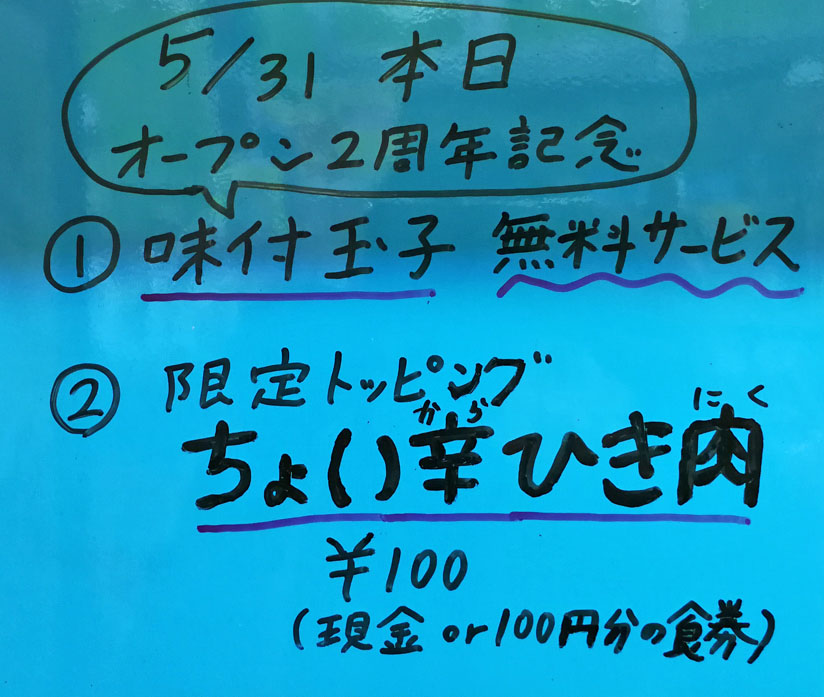 5/31 本日
オープン2周年記念
① 味付玉子 無料サービス
② 限定トッピング
から にく
ちょい辛ひき肉
¥100
(現金 or 100円分の食券)